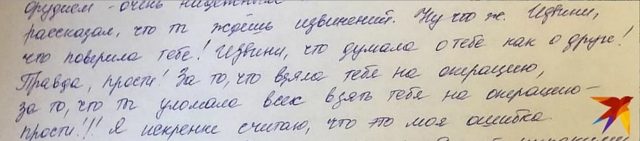 орудием – очень
рассказал, что ты ждёшь извинений. Ну что ж. Извини,
что поверила тебе! Извини, что думала о тебе как о друге!
Правда, прости! За то, что взяла тебя на операцию,
за то, что ты уломала всех взять тебя на операцию –
прости!!! Я искренне считаю, что это моя ошибка